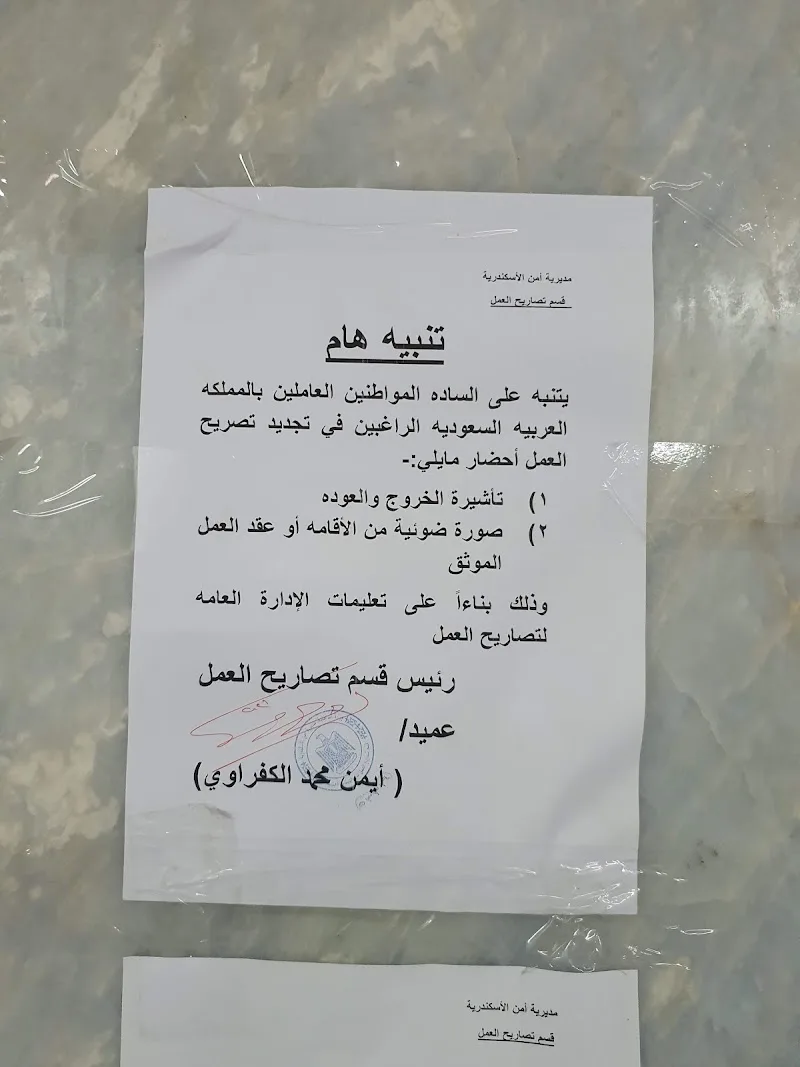 مديرية أمن الأسكندرية
قسم تصاريح العمل
تنبيه هام
يتنبه على الساده المواطنين العاملين بالمملكه
العربيه السعوديه الراغبين في تجديد تصريح
العمل أحضار مايلي:-
١) تأشيرة الخروج والعوده
٢) صورة ضوئية من الأقامه أو عقد العمل
الموثق
وذلك بناءاً على تعليمات الإدارة العامه
لتصاريح العمل
رئيس قسم تصاريح العمل
عميد/
( أيمن محمد الكفراوي)
مديرية أمن الأسكندرية
قسم تصاريح العمل